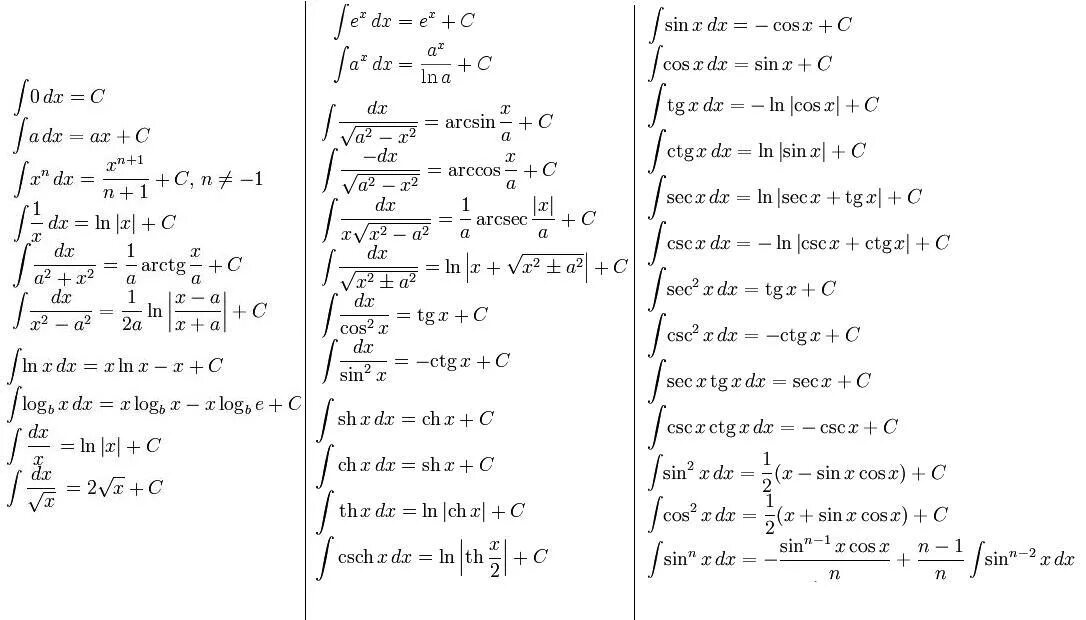 ∫0 dx = C
∫a dx = ax + C
∫xⁿ dx = xⁿ⁺¹/(n + 1) + C, n ≠ −1
∫1/x dx = ln |x| + C
∫dx/(a² + x²) = 1/a arctg x/a + C
∫dx/(x² − a²) = 1/(2a) ln |(x − a)/(x + a)| + C
∫ln x dx = x ln x − x + C
∫log_b x dx = x log_b x − x log_b e + C
∫dx/x = ln |x| + C
∫dx/√x = 2√x + C
∫eˣ dx = eˣ + C
∫aˣ dx = aˣ/ln a + C
∫dx/√(a² − x²) = arcsin x/a + C
∫−dx/√(a² − x²) = arccos x/a + C
∫dx/(x√(x² − a²)) = 1/a arcsec |x|/a + C
∫dx/√(x² ± a²) = ln |x + √(x² ± a²)| + C
∫dx/cos² x = tg x + C
∫dx/sin² x = −ctg x + C
∫sh x dx = ch x + C
∫ch x dx = sh x + C
∫th x dx = ln |ch x| + C
∫csch x dx = ln |th x/2| + C
∫sin x dx = − cos x + C
∫cos x dx = sin x + C
∫tg x dx = − ln |cos x| + C
∫ctg x dx = ln |sin x| + C
∫sec x dx = ln |sec x + tg x| + C
∫csc x dx = − ln |csc x + ctg x| + C
∫sec² x dx = tg x + C
∫csc² x dx = −ctg x + C
∫sec x tg x dx = sec x + C
∫csc x ctg x dx = − csc x + C
∫sin² x dx = 1/2(x − sin x cos x) + C
∫cos² x dx = 1/2(x + sin x cos x) + C
∫sinⁿ x dx = −(sinⁿ⁻¹ x cos x)/n + (n − 1)/n ∫sinⁿ⁻² x dx